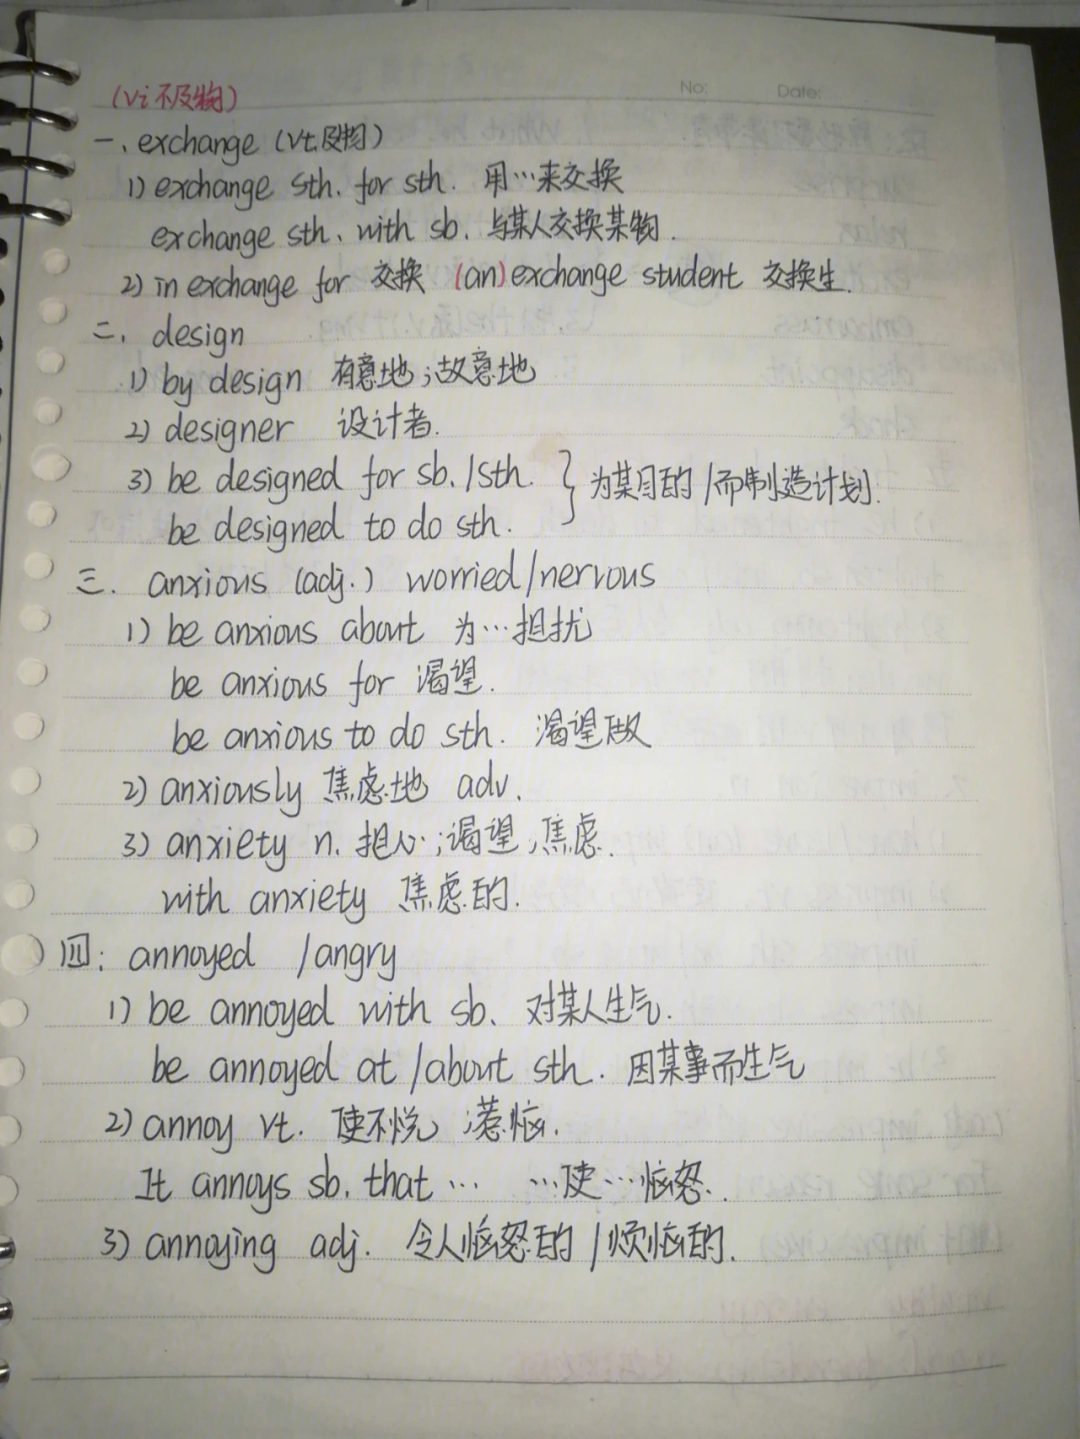 No:
Date:
(vi 不及物)
一、exchange (vt.及物)
1) exchange sth. for sth. 用…来交换
exchange sth. with sb. 与某人交换某物.
2) in exchange for 交换 (an) exchange student 交换生.
二、design
1) by design 有意地;故意地
2) designer 设计者.
3) be designed for sb./sth. } 为某目的/而制造计划.
be designed to do sth.
三. anxious (adj.) worried/nervous
1) be anxious about 为…担扰
be anxious for 渴望.
be anxious to do sth. 渴望做
2) anxiously 焦虑地 adv.
3) anxiety n. 担心;渴望,焦虑.
with anxiety 焦虑的.
四: annoyed /angry
1) be annoyed with sb. 对某人生气.
be annoyed at /about sth. 因某事而生气
2) annoy vt. 使不悦;惹恼.
It annoys sb. that … …使…恼怒.
3) annoying adj. 令人恼怒的/烦恼的.